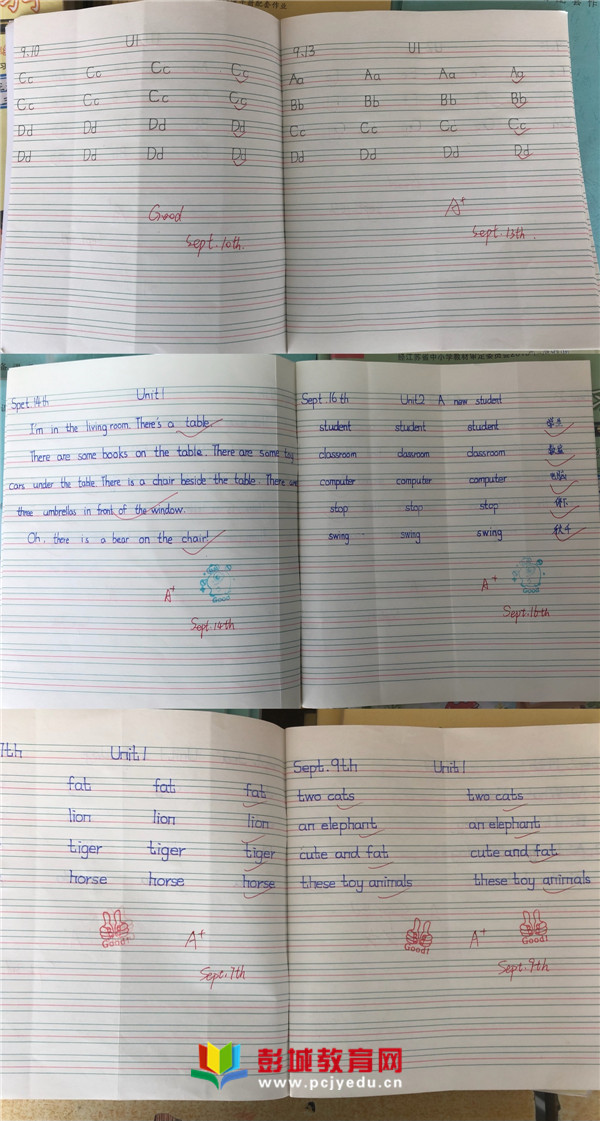 9.10 U1
Cc Cc Cc Cc
Cc Cc Cc Cc
Dd Dd Dd Dd
Dd Dd Dd Dd
Good
Sept. 10th.
9.13 U1
Aa Aa Aa Aa
Bb Bb Bb Bb
Cc Cc Cc Cc
Dd Dd Dd Dd
A+
Sept. 13th.
Spet. 14th Unit1
I'm in the living room. There's a table.
There are some books on the table. There are some toy
cars under the table. There is a chair beside the table. There are
three umbrellas in front of the window.
Oh, there is a bear on the chair!
A+
Good
Sept. 14th
Sept. 16th Unit2 A new student
student student student 学生
classroom classroom classroom 教室
computer computer computer 电脑
stop stop stop 停下
swing swing swing 秋千
A+
Good
Sept. 16th
7th Unit1
fat fat fat
lion lion lion
tiger tiger tiger
horse horse horse
Good!
A+
Sept. 7th
Sept. 9th Unit1
two cats two cats
an elephant an elephant
cute and fat cute and fat
these toy animals these toy animals
Good!
A+
Good!
Sept. 9th
彭城教育网
www.pcjyedu.cn